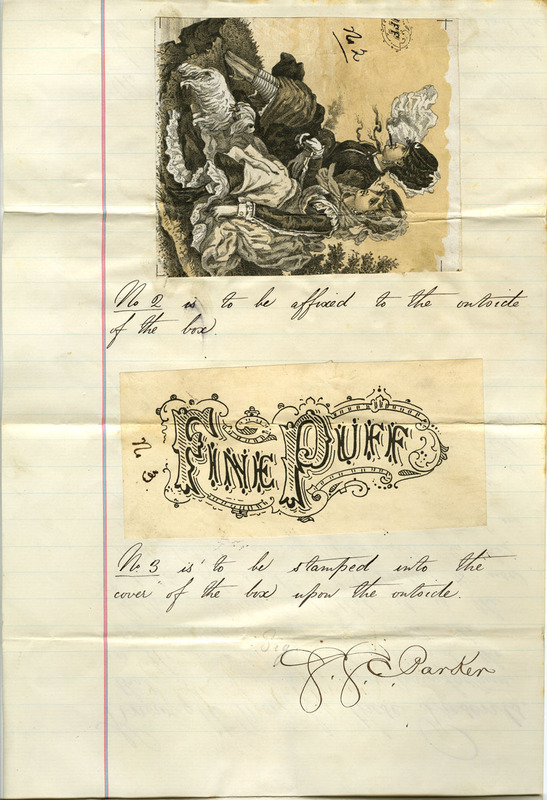 No 2
No 2 is to be affixed to the outside
of the box.
No 3.
FINE PUFF
No 3 is to be stamped into the
cover of the box upon the outside.
J. J. C. Parker